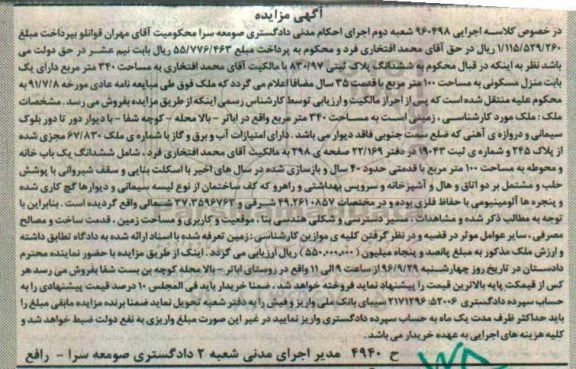 آگهی مزایده
در خصوص کلاسه اجرایی ۹۶۰۴۹۸ شعبه دوم اجرای احکام مدنی دادگستری صومعه سرا محکومیت آقای مهران قوانلو بپرداخت مبلغ
۱/۱۱۵/۵۲۹/۲۶۰ ریال در حق آقای محمد افتخاری فرد و محکوم به پرداخت مبلغ ۵۵/۷۷۶/۴۶۳ ریال بابت نیم عشر در حق دولت می
باشد نظر به اینکه در قبال محکوم به ششدانگ پلاک ثبتی ۸۳۰/۹۷ با مالکیت آقای محمد افتخاری به مساحت ۳۴۰ متر مربع دارای یک
بابت منزل مسکونی به مساحت ۱۰۰ متر مربع با قدمت ۳۵ سال مضافا اعلام می گردد که ملک فوق طی مبایعه نامه عادی مورخه ۹۱/۷/۸ به
محکوم علیه منتقل شده است که پس از احراز مالکیت و ارزیابی توسط کارشناس رسمی اینکه از طریق مزایده بفروش می رسد. مشخصات
ملک: ملک مورد کارشناسی، زمینی است به مساحت ۳۴۰ متر مربع واقع در اباتر - بالا محله - کوچه شفا - با دیوار دور تا دور بلوک
سیمانی و دروازه ی آهنی که ضلع سمت جنوبی فاقد دیوار می باشد. دارای امتیازات آب و برق و گاز با شماره ی ملک ۶۷/۸۳۰ مجزی شده
از پلاک ۲۴۵ و شماره ی ثبت ۱۹۰۴۳ در دفتر ۲۲/۱۶۹ صفحه ی ۳۹۸ به مالکیت آقای محمد افتخاری فرد، شامل ششدانگ یک باب خانه
و محوطه به مساحت ۱۰۰ متر مربع با قدمتی حدود ۴۰ سال و بازسازی شده در سال های اخیر با اسکلت بنایی و سقف شیروانی با پوشش
حلب و مشتمل بر دو اتاق و هال و آشپزخانه و سرویس بهداشتی و راهرو که کف ساختمان از نوع لیسه سیمانی و دیوارها گچ کاری شده
و پنجره ها آلومینیومی با حفاظ فلزی بوده و در مختصات ۴۹.۲۶۱۰۸۵۷ شرقی و ۳۷.۳۵۹۶۷۶۳ شمالی واقع گردیده است. بنابراین با
توجه به مطالب ذکر شده و مشاهدات عینی در حد مقدور و شکل هندسی بنا، موقعیت و کاربری و مساحت زمین، قدمت ساخت و مصالح
مصرفی، سایر عوامل موثر در قضیه و در نظر گرفتن کلیه ی موازین کارشناسی: زمین تعرفه شده با اسناد ارائه شده به دادگاه تطابق داشته
و ارزش ملک مذکور به مبلغ پانصد و پنجاه میلیون (۵۵۰,۰۰۰,۰۰۰) ریال ارزیابی می گردد. اینک از طریق مزایده با حضور نماینده محترم
دادستان در تاریخ روز چهارشنبه ۹۶/۹/۲۹ از ساعت ۹ الی ۱۱ واقع در روستای اباتر - بالا محله کوچه بن بست شفا بفروش می رسد هر
کس از قیمت پایه بالاترین قیمت را پیشنهاد نماید فروخته خواهد شد. ضمنا خریدار باید فی المجلس ۱۰ درصد قیمت پیشنهادی را به
حساب سپرده دادگستری ۲۱۷۱۲۹۶۰۵۲۰۰۶ سیبای بانک ملی واریز و فیش را به دفتر شعبه تحویل نماید ضمنا برنده مزایده مابقی مبلغ را
باید حداکثر ظرف مدت یک ماه به حساب سپرده دادگستری واریز نمایید در غیر این صورت مبلغ واریزی به نفع دولت ضبط خواهد شد و
کلیه هزینه های اجرایی به عهده خریدار می باشد.
ح ۴۹۴۰ مدیر اجرای مدنی شعبه ۲ دادگستری صومعه سرا - رافع